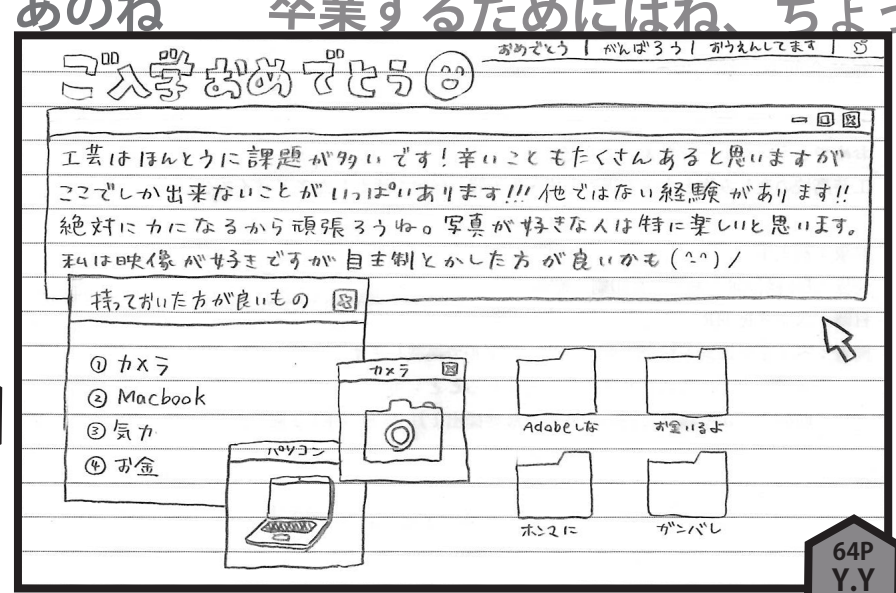 あのね　卒業するためにはね、ちょっ
おめでとう | がんばろう | おうえんしてます |
ご入学おめでとう
工芸はほんとうに課題が多いです！辛いこともたくさんあると思いますが
ここでしか出来ないことがいっぱいあります!!! 他ではない経験があります!!
絶対に力になるから頑張ろうね。写真が好きな人は特に楽しいと思います。
私は映像が好きですが自主制とかした方が良いかも(^^)/
持っておいた方が良いもの
① カメラ
② Macbook
③ 気力
④ お金
カメラ
パソコン
Adobeしな
お金いるよ
ホンマに
ガンバレ
64P
Y.Y